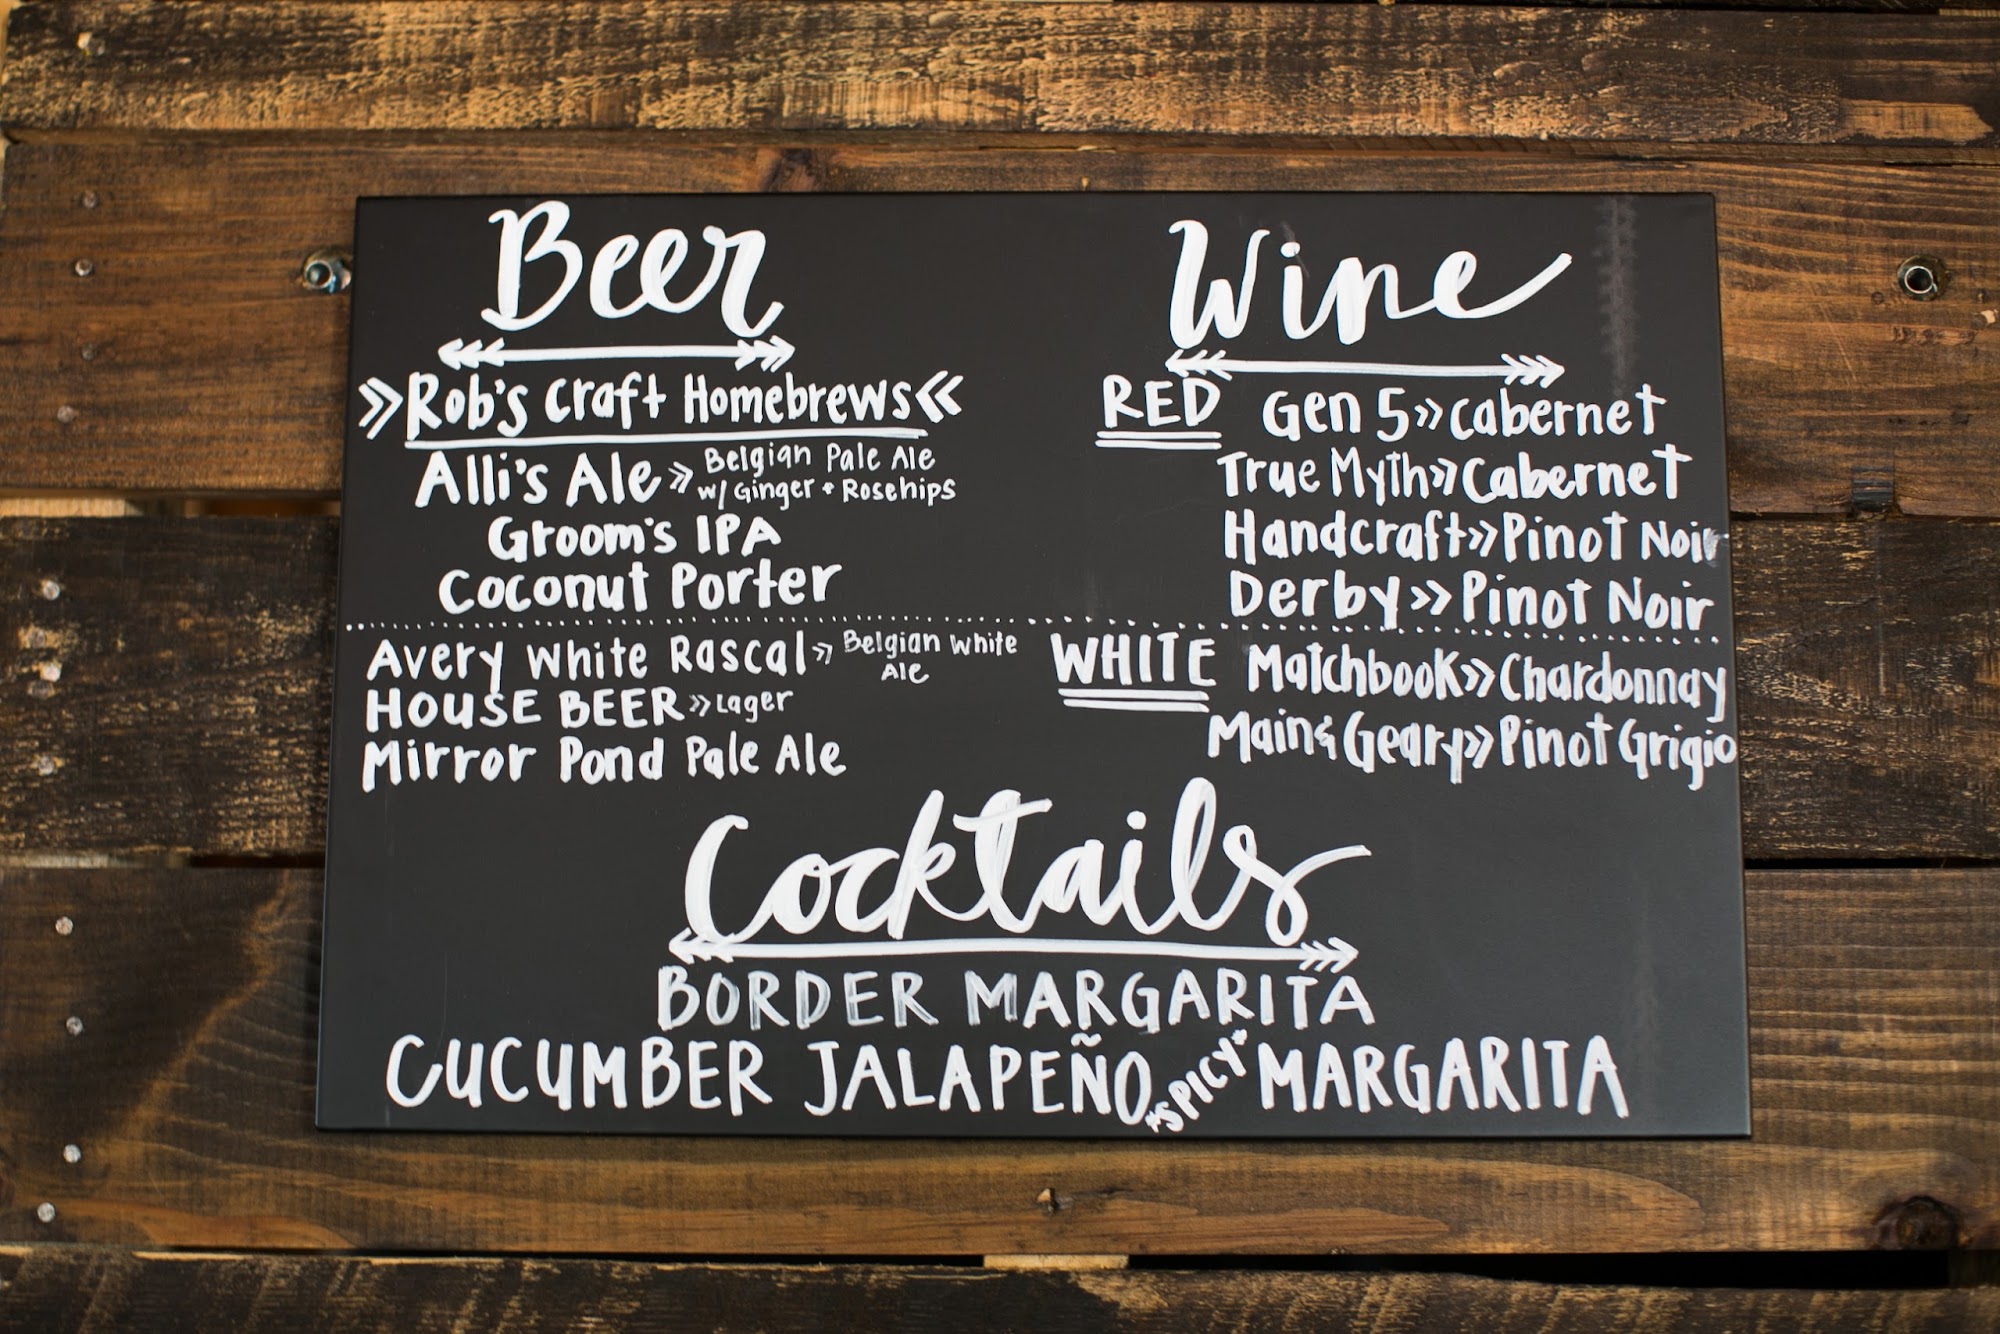 Beer
»Rob's Craft Homebrews«
Alli's Ale » Belgian Pale Ale
w/ Ginger + Rosehips
Groom's IPA
Coconut Porter
Avery White Rascal » Belgian White
Ale
HOUSE BEER » Lager
Mirror Pond Pale Ale
Wine
RED Gen 5 » Cabernet
True Myth » Cabernet
Handcraft » Pinot Noir
Derby » Pinot Noir
WHITE Matchbook » Chardonnay
Main & Geary » Pinot Grigio
Cocktails
BORDER MARGARITA
CUCUMBER JALAPEÑO *SPICY* MARGARITA